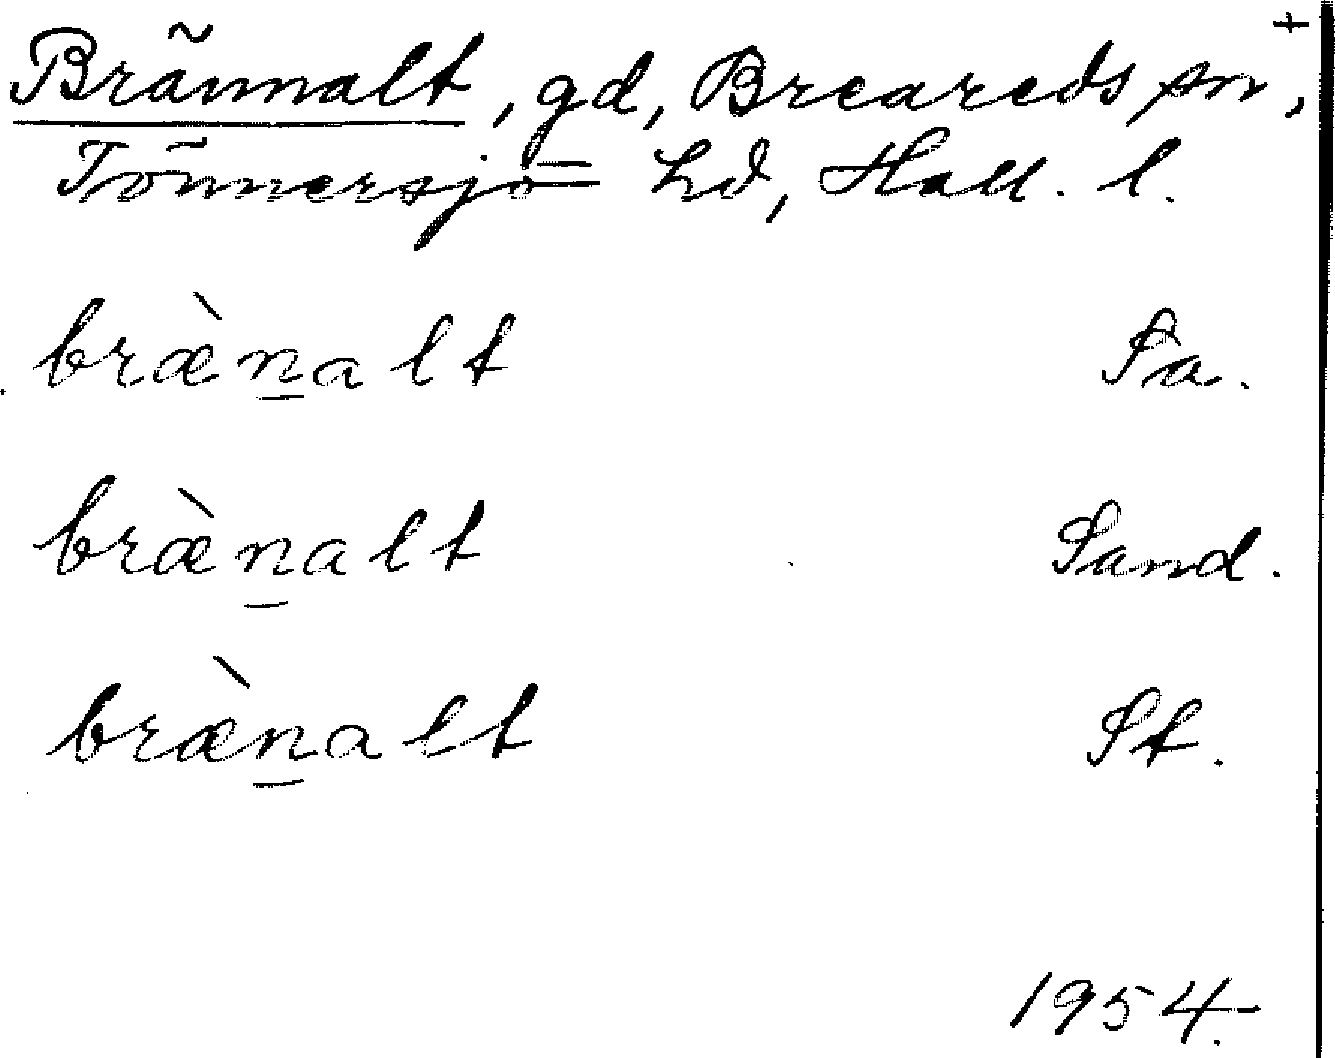 +
Brännalt, gd, Breareds sn,
Tönnersjö hd, Hall. l.
bræ̀n̲alt Sa.
bræ̀n̲alt Sand.
bræ̀n̲alt St.
1954.